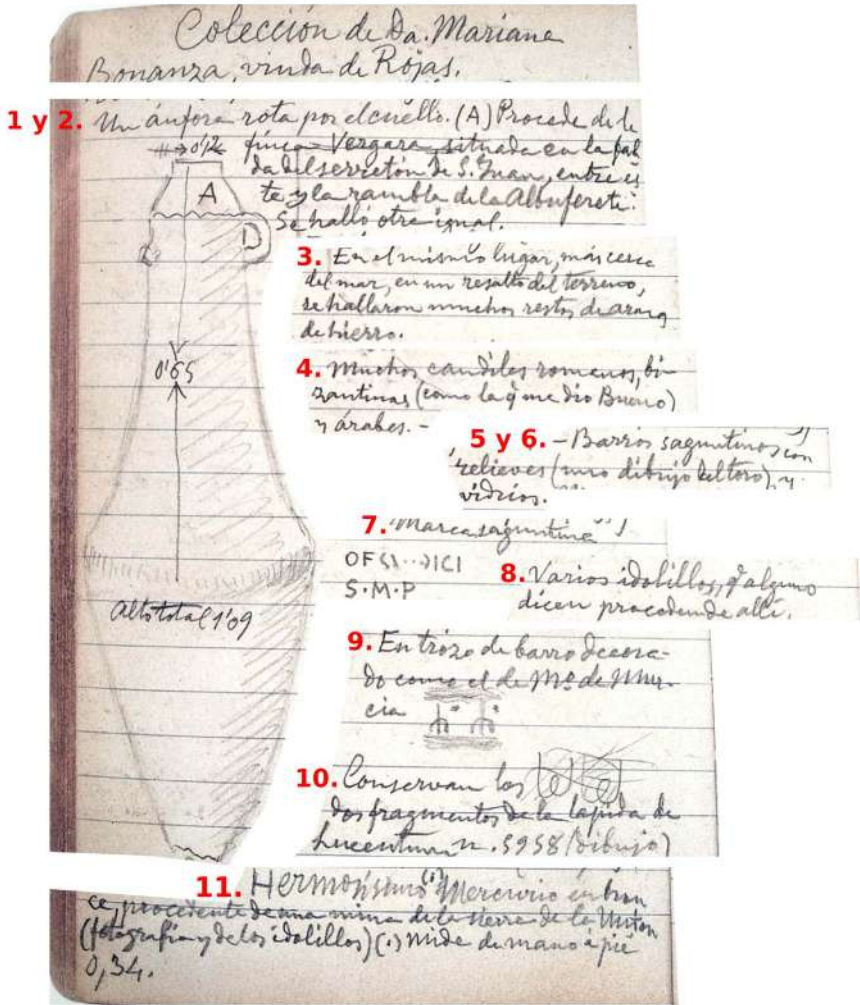 Colección de Da. Mariana
Bonanza, viuda de Rojas.
1 y 2. Un ánfora rota por el cuello. (A) Procede de la
0'12 finca Vergara, situada en la fal
da del serretón de S. Juan, entre és
te y la rambla de la Albufereta.
Se halló otra igual.
A
D
3. En el mismo lugar, más cerca
del mar, en un resalto del terreno,
se hallaron muchos restos de
de hierro.
0'65
4. Muchos candiles romanos, bi-
zantinas (como la q me dio Bueno)
y árabes. -
5 y 6. - Barros saguntinos con
relieves (uno dibujo del toro), y
vidrios.
7. Marca saguntina
OF ICI
S.M.P
8. Varios idolillos, q alguno
dicen proceden de allí.
Alto total 1'09
9. En trozo de barro decora-
do como el de Mo. de Mur-
cia
10. Conservan los
dos fragmentos de la lápida de
Lucentum n. 5958 (dibujo)
11. Hermosísimo (1) Mercurio en bron
ce, procedente de una mina de la sierra de la Unión
(fotografía y de los idolillos) (1) Mide de mano á pié
0,34.